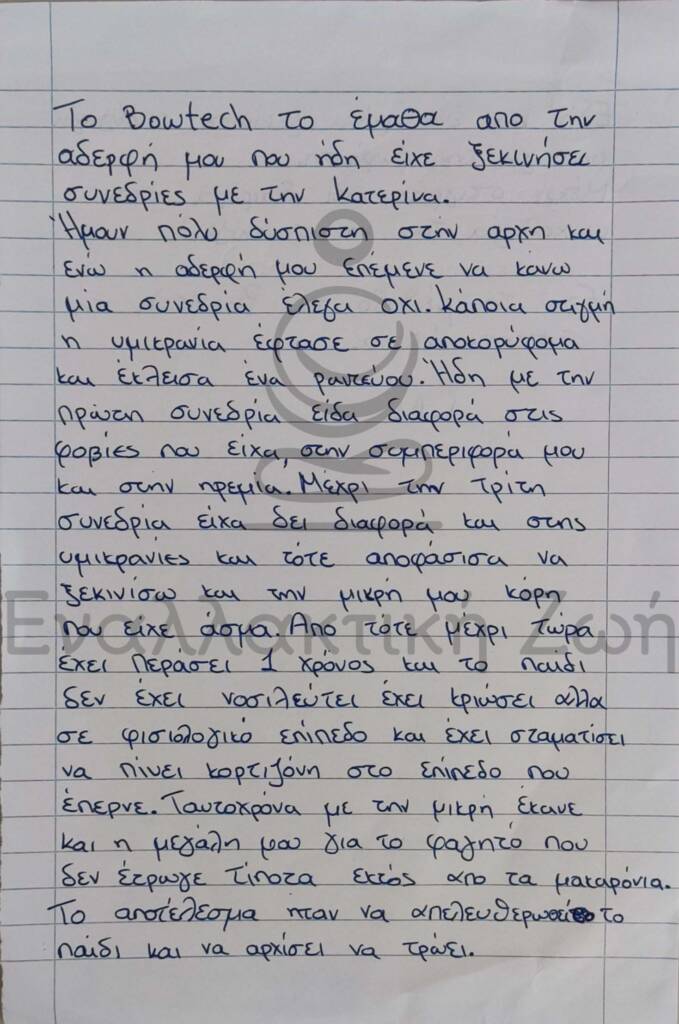 Το Bowtech το έμαθα απο την
αδερφή μου που ήδη είχε ξεκινήσει
συνεδρίες με την Κατερίνα.
Ήμουν πόλυ δύσπιστη στην αρχη και
ενώ η αδερφή μου επέμενε να κανω
μια συνεδρία έλεγα οχι. Κάποια στιγμή
η υμικρανία έφτασε σε αποκορύφομα
και έκλεισα ένα ραντεύου. Ήδη με την
πρώτη συνεδρία είδα διαφορά στις
φοβίες που είχα, στην σαμπεριφορά μου
και στην ηρεμία. Μέχρι την τρίτη
συνεδρία είχα δει διαφορά και στης
υμικρανίες και τότε αποφάσισα να
ξεκινίσω και την μικρή μου κόρη
που είχε άσμα. Απο τότε μέχρι τώρα
έχει περάσει 1 χρόνος και το παιδι
δεν έχει νοσιλεύτει έχει κριώσει αλλα
σε φισιολογικό επίπεδο και έχει σταματίσει
να πίνει κορτιζόνη στο επίπεδο που
έπερνε. Ταυτοχρόνα με την μικρή έκανε
και η μεγάλη μου για το φαγητό που
δεν έτρωγε τίποτα εκτός απο τα μακαρόνια.
Το αποτέλεσμα ηταν να απελευθερωθεί το
παίδι και να αρχίσει να τρώει.
Εναλλακτική Ζωή